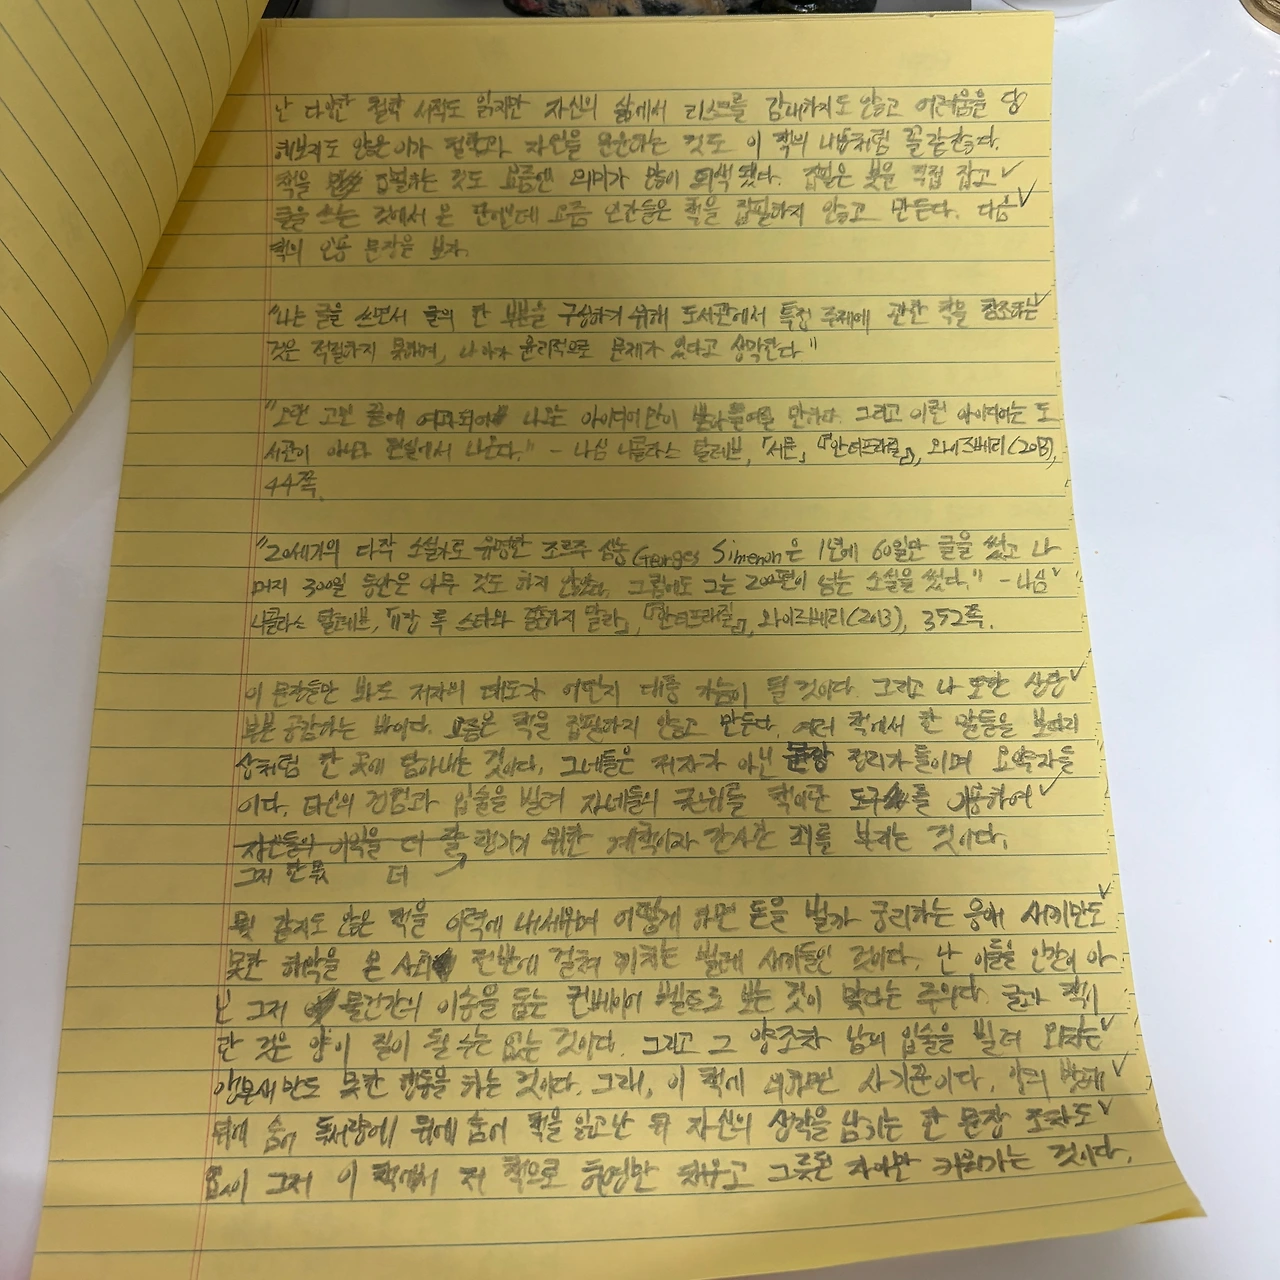 난 다양한 철학 서적도 읽지만 자신의 삶에서 리스크를 감내하지도 않고 어려움을 당
해보지도 않은 이가 철학과 자연을 운운하는 것도 이 책의 내용처럼 꼴같잖다.
책을 집필하는 것도 요즘엔 의미가 많이 퇴색됐다. 집필은 붓을 직접 잡고
글을 쓰는 것에서 온 단어인데 요즘 인간들은 책을 집필하지 않고 만든다. 다음
책의 인용 문장을 보자.
"나는 글을 쓰면서 글의 한 부분을 구상하기 위해 도서관에서 특정 주제에 관한 책을 참조하는
것은 적절하지 못하며, 나아가 윤리적으로 문제가 있다고 생각한다."
"오랜 고민 끝에 여과되어 나오는 아이디어만이 받아들여질 만하다. 그리고 이런 아이디어는 도
서관이 아니라 현실에서 나온다." - 나심 니콜라스 탈레브, 「서문」, 『안티프래질』, 와이즈베리(2013),
44쪽.
"20세기의 다작 소설가로 유명한 조르주 심농Georges Simenon은 1년에 60일만 글을 썼고 나
머지 300일 동안은 아무 것도 하지 않았다. 그럼에도 그는 200편이 넘는 소설을 썼다." - 나심
니콜라스 탈레브, 록 스타와 결혼하지 말라」, 『안티프래질』, 와이즈베리(2013), 352쪽.
이 문장들만 봐도 저자의 태도가 어떤지 대충 가늠이 될 것이다. 그리고 나 또한 상당
부분 공감하는 바이다. 요즘은 책을 집필하지 않고 만든다. 여러 책에서 한 말들을 보따리
상처럼 한 곳에 담아내는 것이다. 그네들은 저자가 아닌 문장 정리가들이며 요약자들
이다. 타인의 경험과 입술을 빌려 자네들의 권위를 책이란 도구를 이용하여
자신들의 이익을 더 잘 챙기기 위한 계획이자 간사한 죄를 부리는 것이다.
그저 한 몫 더
뭣 같지도 않은 책을 이력에 내세우며 어떻게 하면 돈을 벌까 궁리하는 응애 새끼만도
못한 해악을 온 사회 전반에 걸쳐 끼치는 벌레 새끼들인 것이다. 난 이들을 인간이 아
닌 그저 물건간의 이송을 돕는 컨베이어 벨트로 보는 것이 맞다는 주의다. 글과 책이
란 것은 양이 질이 될 수는 없는 것이다. 그리고 그 양조차 남의 입술을 빌려 외치는
앵무새만도 못한 행동을 하는 것이다. 그래, 이 책에 의하면 사기꾼이다. 방패
뒤에 숨어 독서량에 뒤에 숨어 책을 읽고난 뒤 자신의 생각을 남기는 한 문장 조차도
없이 그저 이 책에서 저 책으로 허영만 채우고 그릇된 자아만 키워가는 것이다.